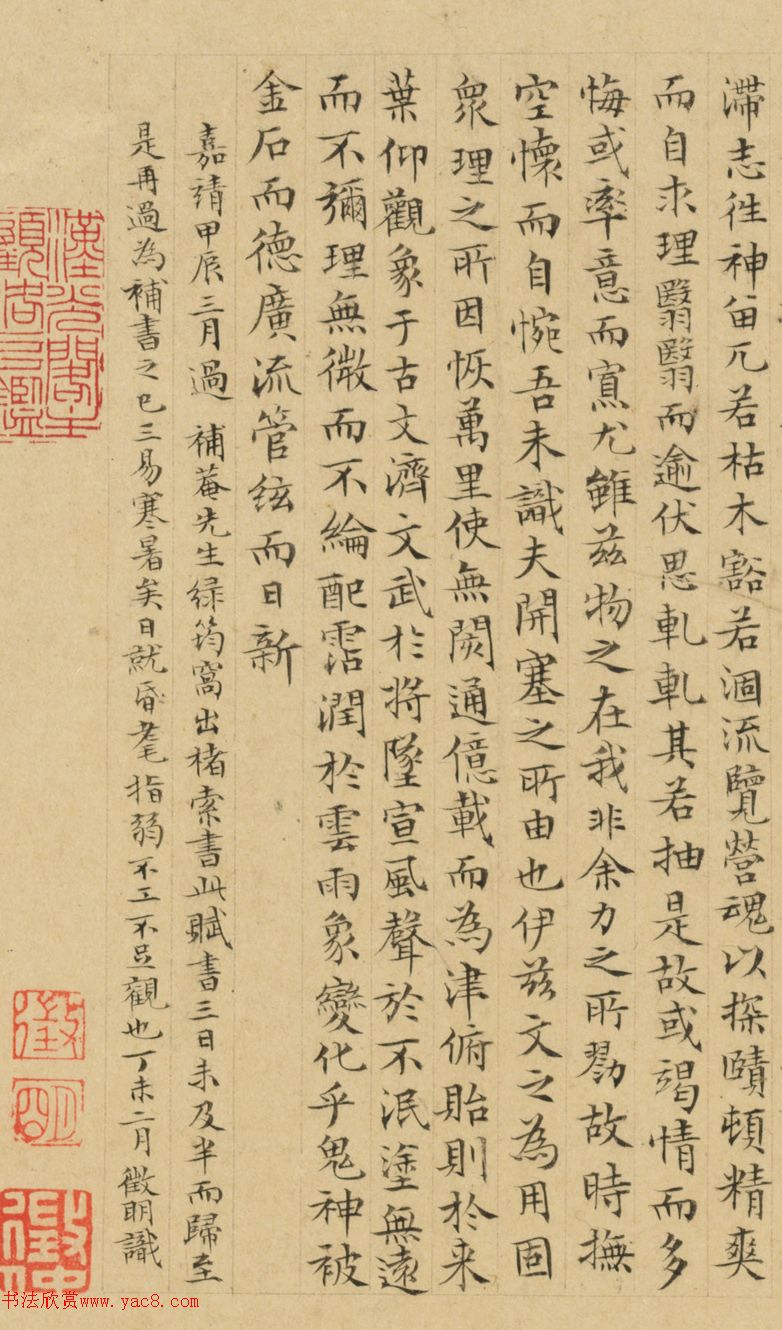 滯志徃神畱兀若枯木豁若涸流覽營魂以探賾頓精爽
而自求理翳翳而逾伏思軋軋其若抽是故或竭情而多
悔或率意而寡尤雖茲物之在我非余力之所勠故時撫
空懷而自惋吾未識夫開塞之所由也伊茲文之為用固
衆理之所因恢萬里使無閡通億載而為津俯貽則於来
葉仰觀象于古文濟文武於將墜宣風聲於不泯塗無遠
而不彌理無微而不綸配霑潤於雲雨象變化乎鬼神被
金石而德廣流管絃而日新
嘉靖甲辰三月過 補菴先生緑筠窩出楮索書此賦書三日未及半而歸至
是再過為補書之已三易寒暑矣日就昏耄指弱不工不足觀也丁未二月徵明識
徵
明
书法欣赏www.yac8.com